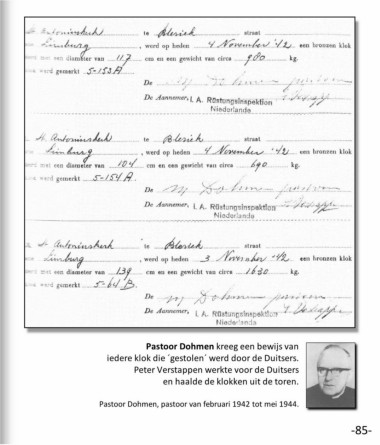 St. Antoniuskerk te Blerick straat
Limburg, werd op heden 4 November '42 een bronzen klok
met een diameter van 117 cm en een gewicht van circa 980 kg.
werd gemerkt 5-153A
De
De Aannemer, I. A. Rüstungsinspektion
Niederlande
St. Antoniuskerk te Blerick straat
Limburg, werd op heden 4 November '42 een bronzen klok
met een diameter van 104 cm en een gewicht van circa 690 kg.
werd gemerkt 5-154A.
De M Dohmen pastoor
De Aannemer, I. A. Rüstungsinspektion
Niederlande
St. Antoniuskerk te Blerick straat
Limburg, werd op heden 3 November '42 een bronzen klok
met een diameter van 139 cm en een gewicht van circa 1630 kg.
werd gemerkt 5-64 B.
De M Dohmen pastoor
De Aannemer, I. A. Rüstungsinspektion
Niederlande
Pastoor Dohmen kreeg een bewijs van
iedere klok die ´gestolen´ werd door de Duitsers.
Peter Verstappen werkte voor de Duitsers
en haalde de klokken uit de toren.
Pastoor Dohmen, pastoor van februari 1942 tot mei 1944.
-85-